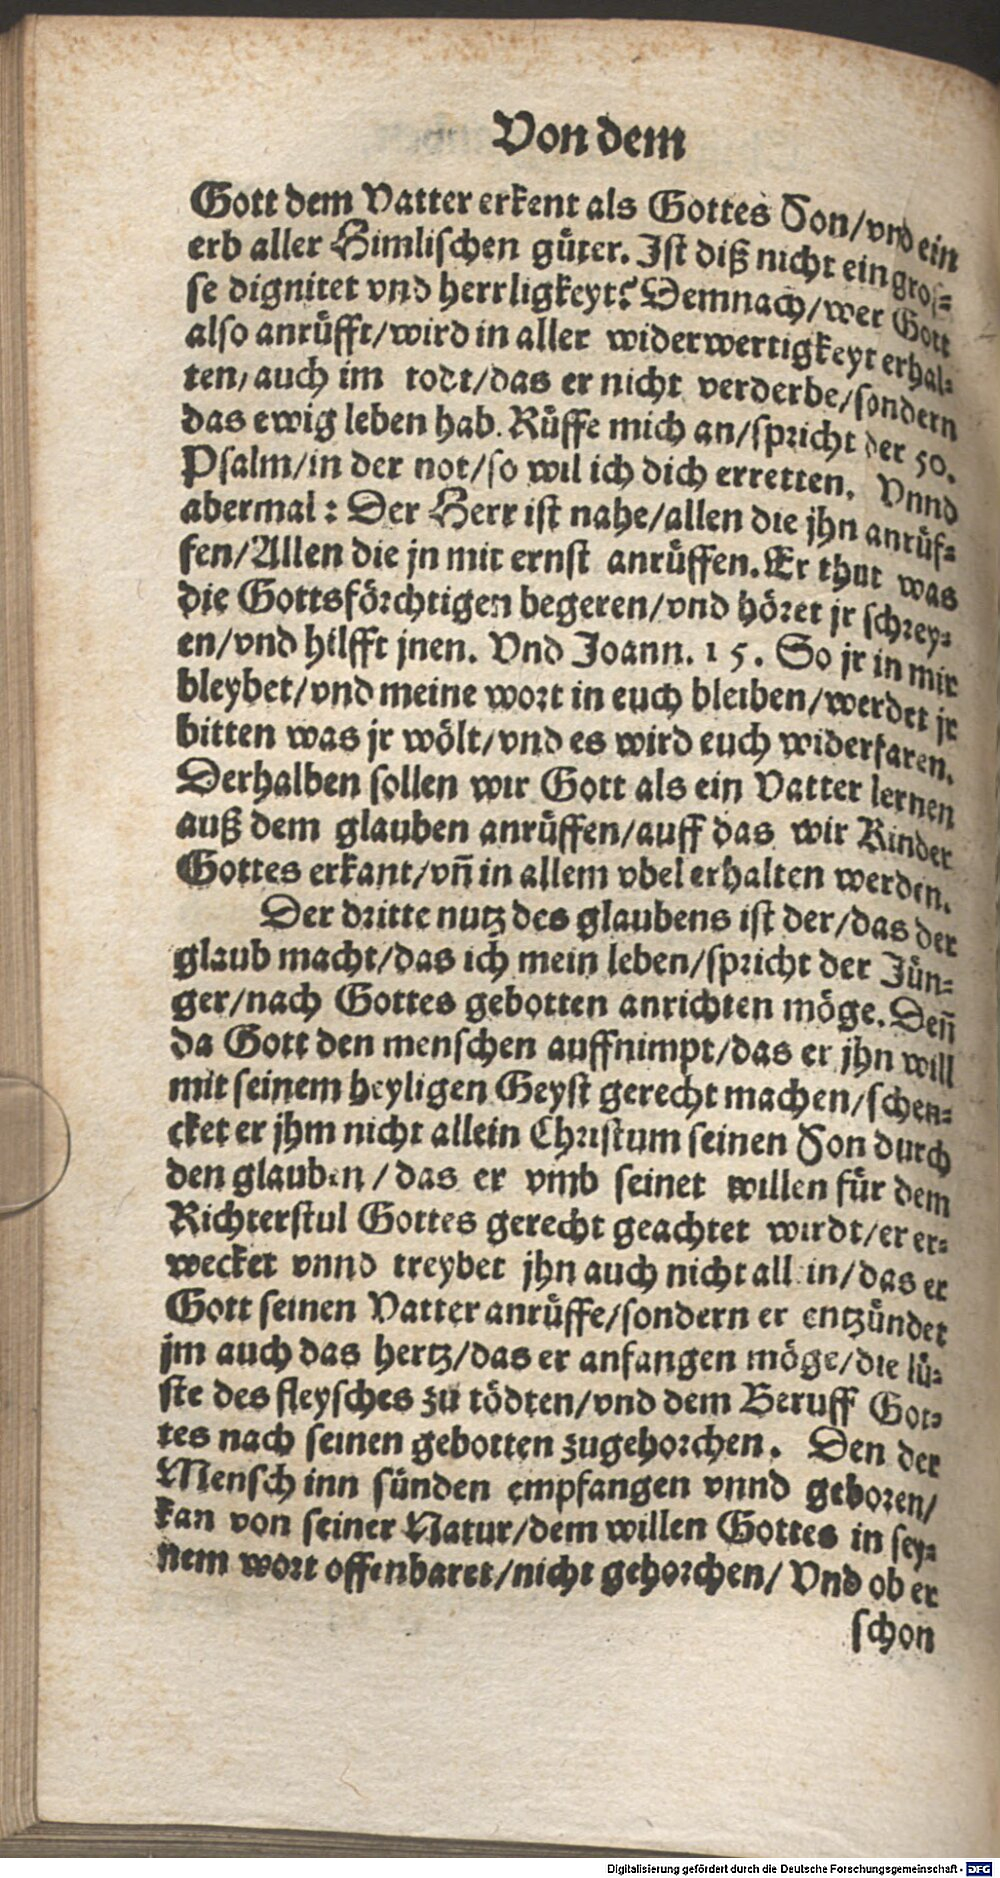 Von dem
Gott dem Vatter erkent als Gottes Son/vnd ein
erb aller Himlischen güter. Ist diß nicht ein gros-
se dignitet vnd herrligkeyt? Demnach/wer Gott
also anrüfft/wird in aller widerwertigkeyt erhal-
ten/auch im todt/das er nicht verderbe/sondern
das ewig leben hab. Rüffe mich an/spricht der 50.
Psalm/in der not/so wil ich dich erretten. Vnnd
abermal: Der Herr ist nahe/allen die jhn anrüf-
fen/Allen die jn mit ernst anrüffen. Er thut was
die Gottsförchtigen begeren/vnd höret jr schrey-
en/vnd hilfft jnen. Vnd Joann. 15. So jr in mir
bleybet/vnd meine wort in euch bleiben/werdet jr
bitten was jr wölt/vnd es wird euch widerfaren.
Derhalben sollen wir Gott als ein Vatter lernen
auß dem glauben anrüffen/auff das wir Kinder
Gottes erkant/vn̄ in allem vbel erhalten werden.
Der dritte nutz des glaubens ist der/das der
glaub macht/das ich mein leben/spricht der Jün-
ger/nach Gottes gebotten anrichten möge. Den̄
da Gott den menschen auffnimpt/das er jhn will
mit seinem heyligen Geyst gerecht machen/schen-
cket er jhm nicht allein Christum seinen Son durch
den glauben/das er vmb seinet willen für dem
Richterstul Gottes gerecht geachtet wirdt/er er-
wecket vnnd treybet jhn auch nicht allein/das er
Gott seinen Vatter anrüffe/sondern er entzündet
jm auch das hertz/das er anfangen möge/die lü-
ste des fleysches zu tödten/vnd dem Beruff Got-
tes nach seinen gebotten zugehorchen. Den der
Mensch inn sünden empfangen vnnd geboren/
kan von seiner Natur/dem willen Gottes in sey-
nem wort offenbaret/nicht gehorchen/Vnd ob er
schon
Digitalisierung gefördert durch die Deutsche Forschungsgemeinschaft - DFG